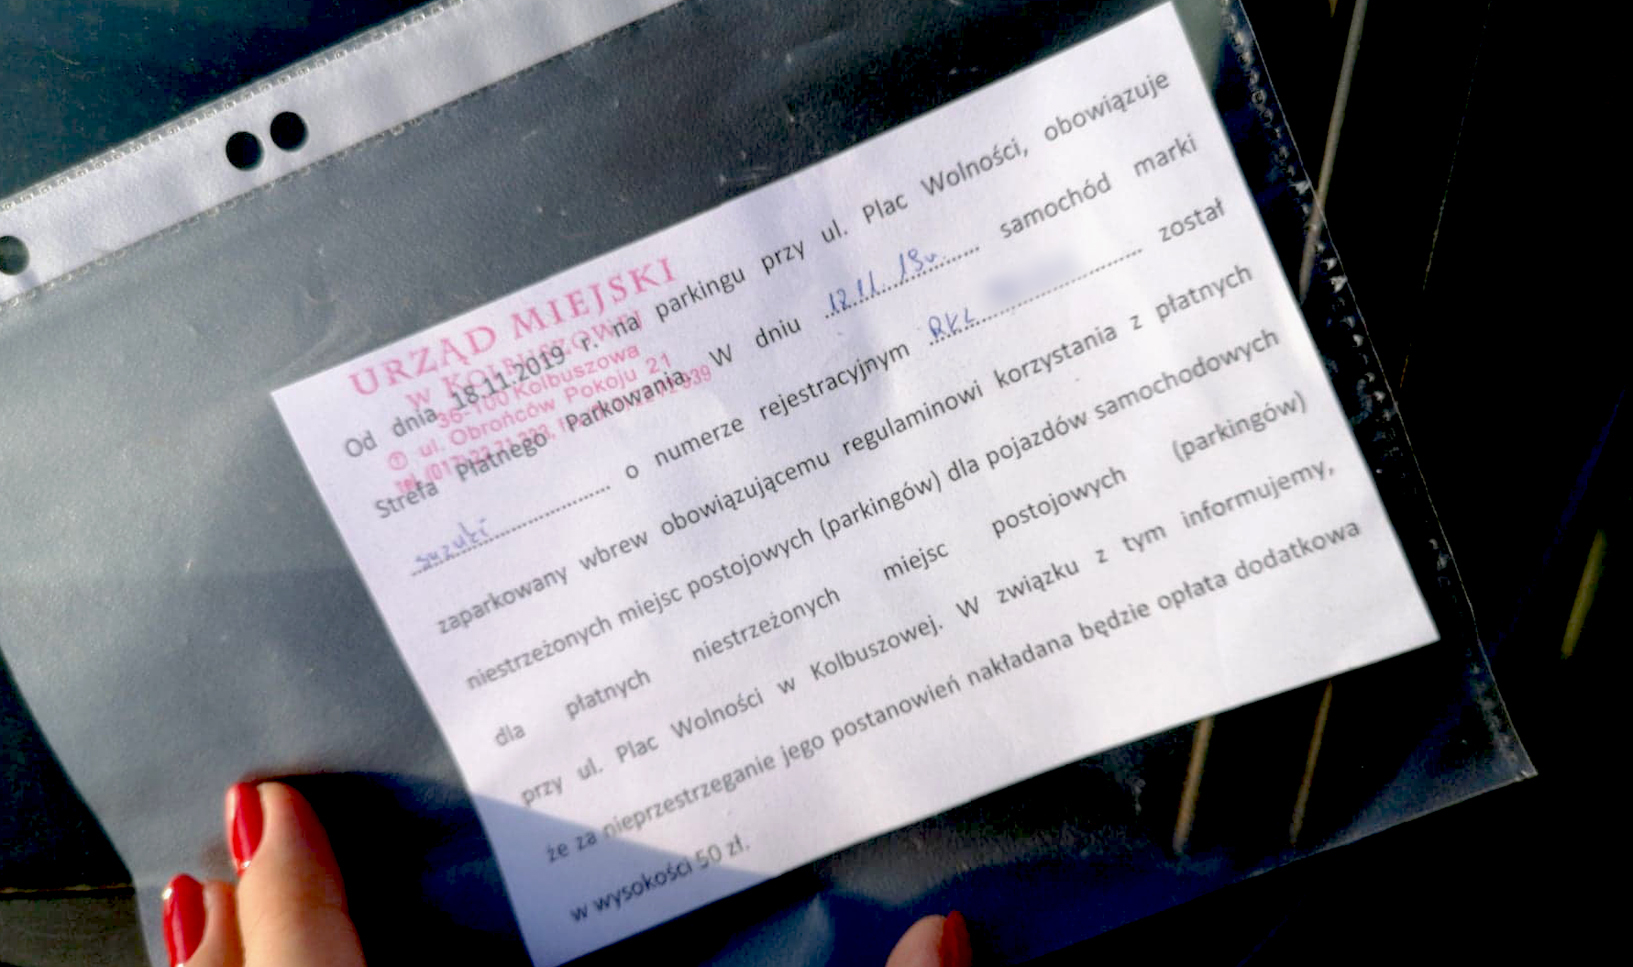 URZĄD MIEJSKI
W KOLBUSZOWEJ
36-100 Kolbuszowa
ul. Obrońców Pokoju 21
Od dnia 18.11.2019 r. na parkingu przy ul. Plac Wolności, obowiązuje
Strefa Płatnego Parkowania. W dniu 12.11.19r. samochód marki
suzuki o numerze rejestracyjnym RKL został
zaparkowany wbrew obowiązującemu regulaminowi korzystania z płatnych
niestrzeżonych miejsc postojowych (parkingów) dla pojazdów samochodowych
dla płatnych niestrzeżonych miejsc postojowych (parkingów)
przy ul. Plac Wolności w Kolbuszowej. W związku z tym informujemy,
że za nieprzestrzeganie jego postanowień nakładana będzie opłata dodatkowa
w wysokości 50 zł.